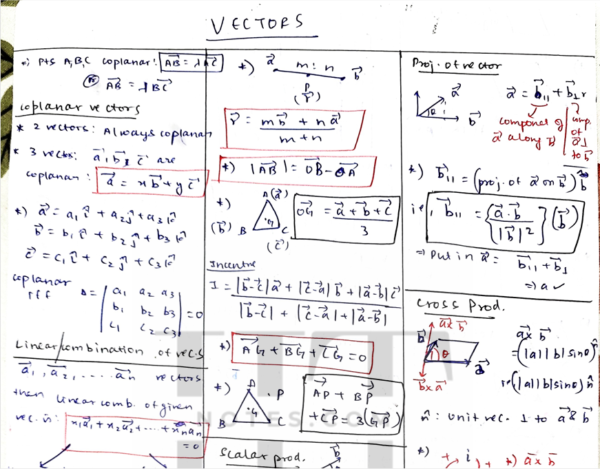 VECTORS
•) pts A,B,C coplanar: AB→ = λ AC→
OR AB→ = λ BC→
coplanar vectors
* 2 vectors: Always coplanar
* 3 vects: a→, b→ & c→ are
coplanar: a→ = x b→ + y c→
*) a→ = a₁ î + a₂ ĵ + a₃ k̂
b→ = b₁ î + b₂ ĵ + b₃ k̂
c→ = c₁ î + c₂ ĵ + c₃ k̂
coplanar
iff Δ = | a₁ a₂ a₃ |
| b₁ b₂ b₃ | = 0
| c₁ c₂ c₃ |
Linear combination of vecs
a₁→, a₂→, ... an→ vectors
then linear comb. of given
vec. is: x₁a₁→ + x₂a₂→ + ... + xnan→
= 0
*) a→ m : n b→
P
(r→)
r→ = (m b→ + n a→) / (m + n)
*) |AB→| = OB→ - OA→
*) A(a→)
(b→) B G C
(c→)
OG→ = (a→ + b→ + c→) / 3
Incentre
I = (|b→-c→| a→ + |c→-a→| b→ + |a→-b→| c→) / (|b→-c→| + |c→-a→| + |a→-b→|)
*) AG→ + BG→ + CG→ = 0
*) A P
B G C
AP→ + BP→
+ CP→ = 3(GP→)
NOTES.COM
Scalar prod.
Proj. of vector
a→ θ b→
a→ = b→₁₁ + b→⊥r
component of
a→ along b→
comp.
of
a→ ⊥
to b→
*) b→₁₁ = (proj. of a→ on b→) b̂
ie, b→₁₁ = {(a→ · b→) / |b→|²} (b→)
⇒ put in a→ = b→₁₁ + b→⊥
⇒ a ✓
Cross Prod.
a→ x b→
b→ θ a→
b→ x a→
a→ x b→
= (|a||b| sinθ) n̂
n̂: unit vec. ⊥ to a→ & b→
*) i *) a→ x b→